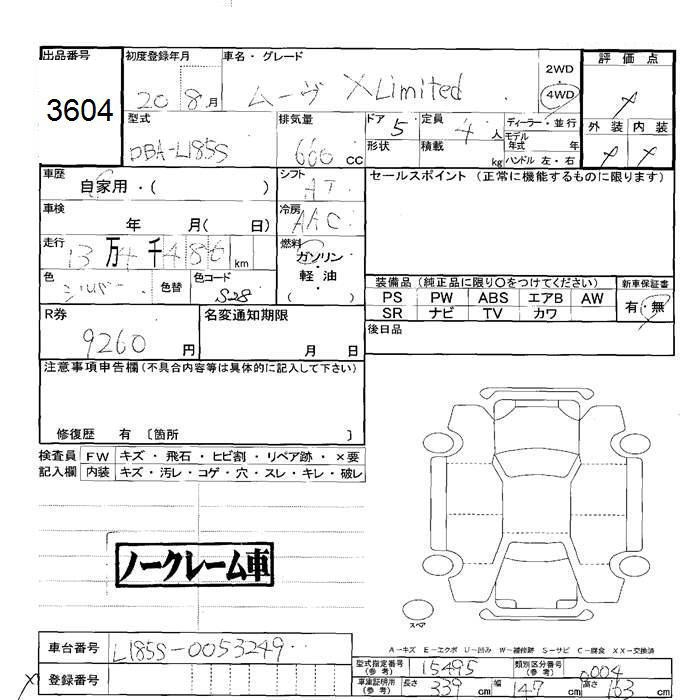 出品番号
3604
初度登録年月
20 8月
車名・グレード
ムーヴ XLimited
2WD
4WD
評価点
外装 内装
型式
DBA-L185S
排気量
660 CC
ドア 5
形状
定員 4人
積載 kg
ディーラー・並行
モデル年式 年
ハンドル 左・右
車歴
自家用・( )
シフト
AT
セールスポイント (正常に機能するものに限ります)
車検
年 月( 日)
冷房
AAC
走行
13万4千486km
燃料
ガソリン
・
軽油
・
( )
色
シルバー
色替
色コード
S28
装備品 (純正品に限り〇をつけてください)
新車保証書
PS PW ABS エアB AW
SR ナビ TV カワ
有・無
R券
9260 円
名変通知期限
月 日
後日品
注意事項申告欄 (不具合内容等は具体的に記入して下さい)
修復歴 有 〔箇所 〕
検査員記入欄
FW キズ・飛石・ヒビ割・リペア跡・×要
内装 キズ・汚レ・コゲ・穴・スレ・キレ・破レ
ノークレーム車
スペア
A-キズ E-エクボ U-凹み W-補修跡 S-サビ C-腐食 XX-交換済
車台番号
L185S-0053249
登録番号
型式指定番号(参考) 15495
類別区分番号(参考) 0004
車庫証明用(参考) 長さ 339 cm 幅 147 cm 高さ 163 cm